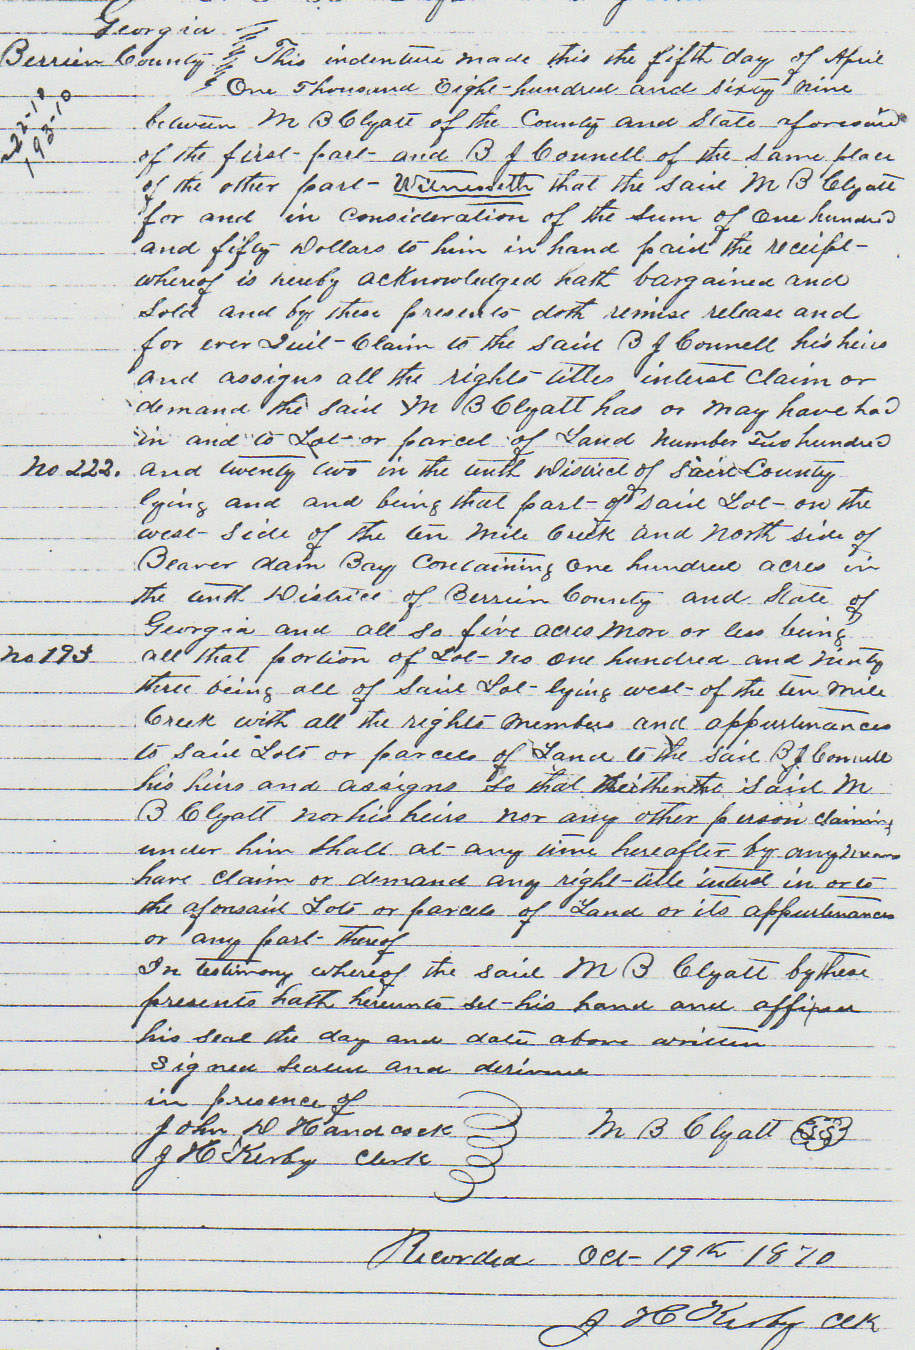 Georgia
Berrien County This indenture made this the fifth day of April
One Thousand Eight-hundred and sixty nine
222-10
193-10
between M B Clyatt of the County and State aforesaid
of the first-part- and B J Connell of the same place
of the other part- Witnesseth that the said M B Clyatt
for and in consideration of the Sum of One hundred
and fifty Dollars to him in hand paid the receipt-
whereof is hereby acknowledged hath bargained and
Sold and by these presents doth remise release and
for ever Quit-Claim to the said B J Connell his heirs
and assigns all the rights titles interest Claim or
demand the said M B Clyatt has or may have had
in and to Lot- or parcel of Land Number Two hundred
No 222. and twenty two in the tenth District of Said County
lying and and being that part- of said Lot- on the
west-Side of the ten Mile Creek and North side of
Beaver dam Bay Containing One hundred acres in
the tenth District of Berrien County and State of
Georgia and all so five acres More or less being
No 193 all that portion of Lot- No One hundred and Ninty
three being all of Said Lot- lying west- of the ten Mile
Creek with all the rights Members and appurtenances
to said Lots or parcels of Land to the said B J Connell
his heirs and assigns So that neither the Said M
B Clyatt nor his heirs nor any other person claiming
under him Shall at-any time hereafter by any Means
have claim or demand any right-title interest in or to
the aforesaid Lots or parcels of Land or its appurtenances
or any part-thereof
In testimony whereof the said M B Clyatt by these
presents hath hereunto set-his hand and affixed
his seal the day and date above written
Signed Sealed and
in presence of
John D Handcock M B Clyatt LS
J H Kirby Clerk
Recorded Oct- 19th 1870
J H Kirby Clk